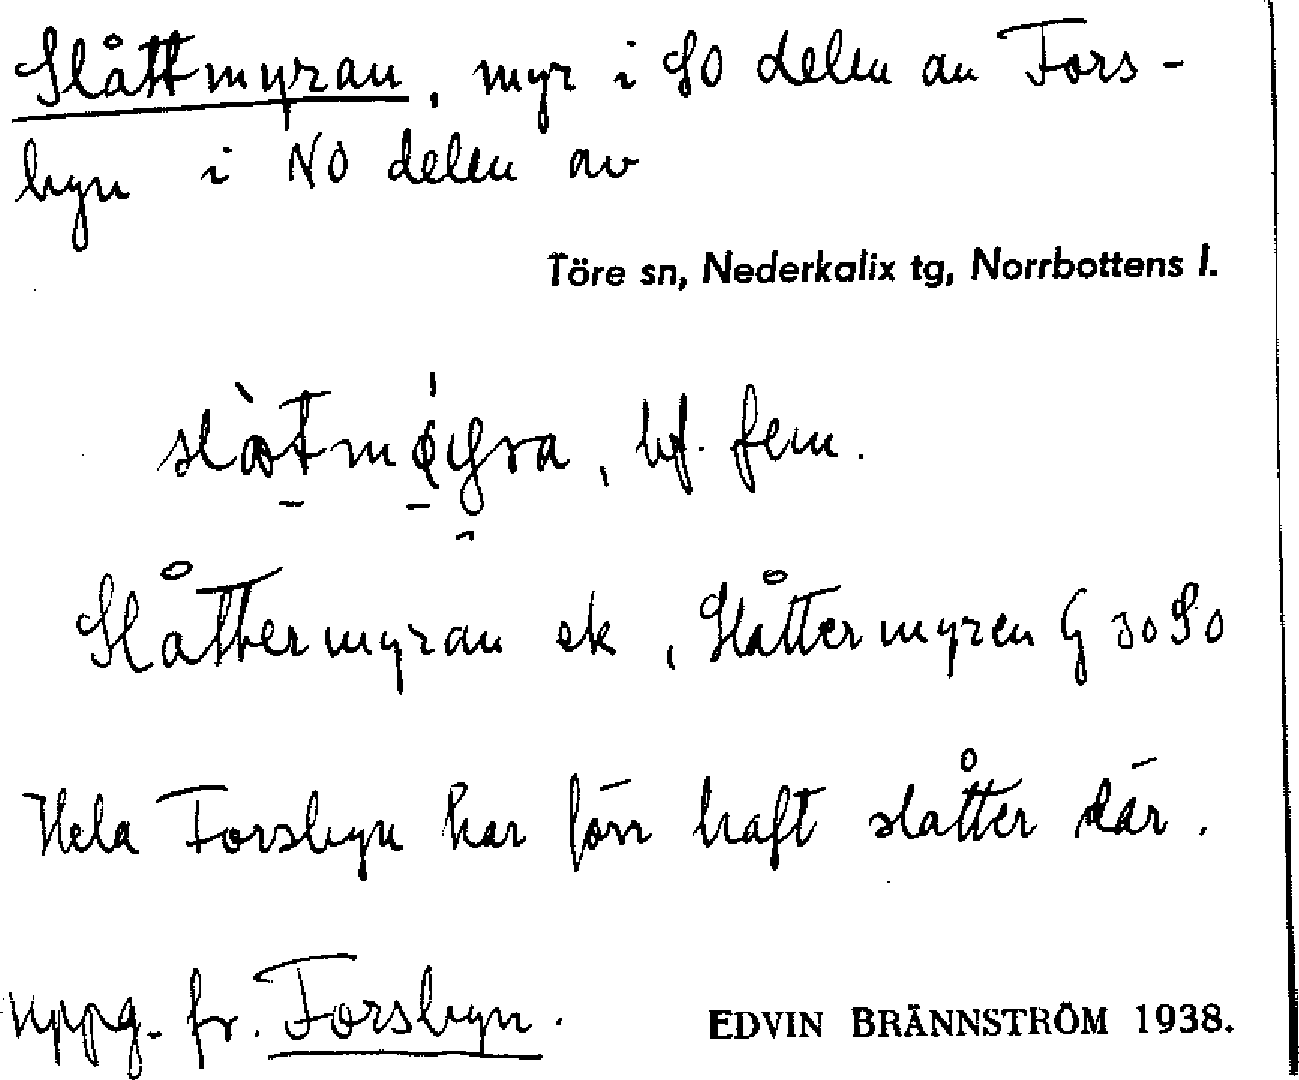 Slåttmyran, myr i SO delen av Fors-
byn i NO delen av
Töre sn, Nederkalix tg, Norrbottens l.
bf. fem.
Slåttermyran ek, Slåttermyren G 30 SO
Hela Forsbyn har förr haft slåtter där.
uppg. fr. Forsbyn.
EDVIN BRÄNNSTRÖM 1938.